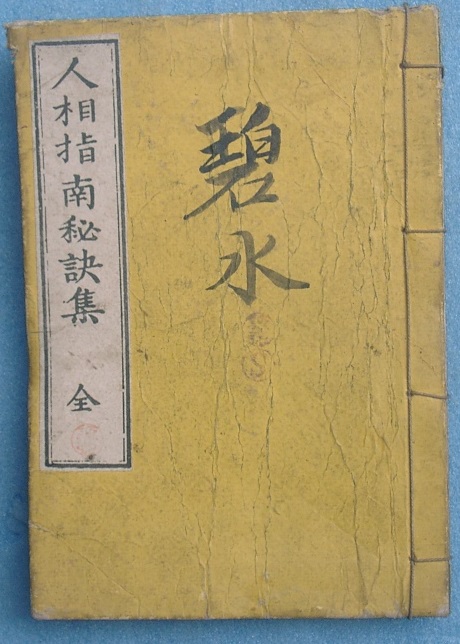 碧水
人相指南秘訣集 全